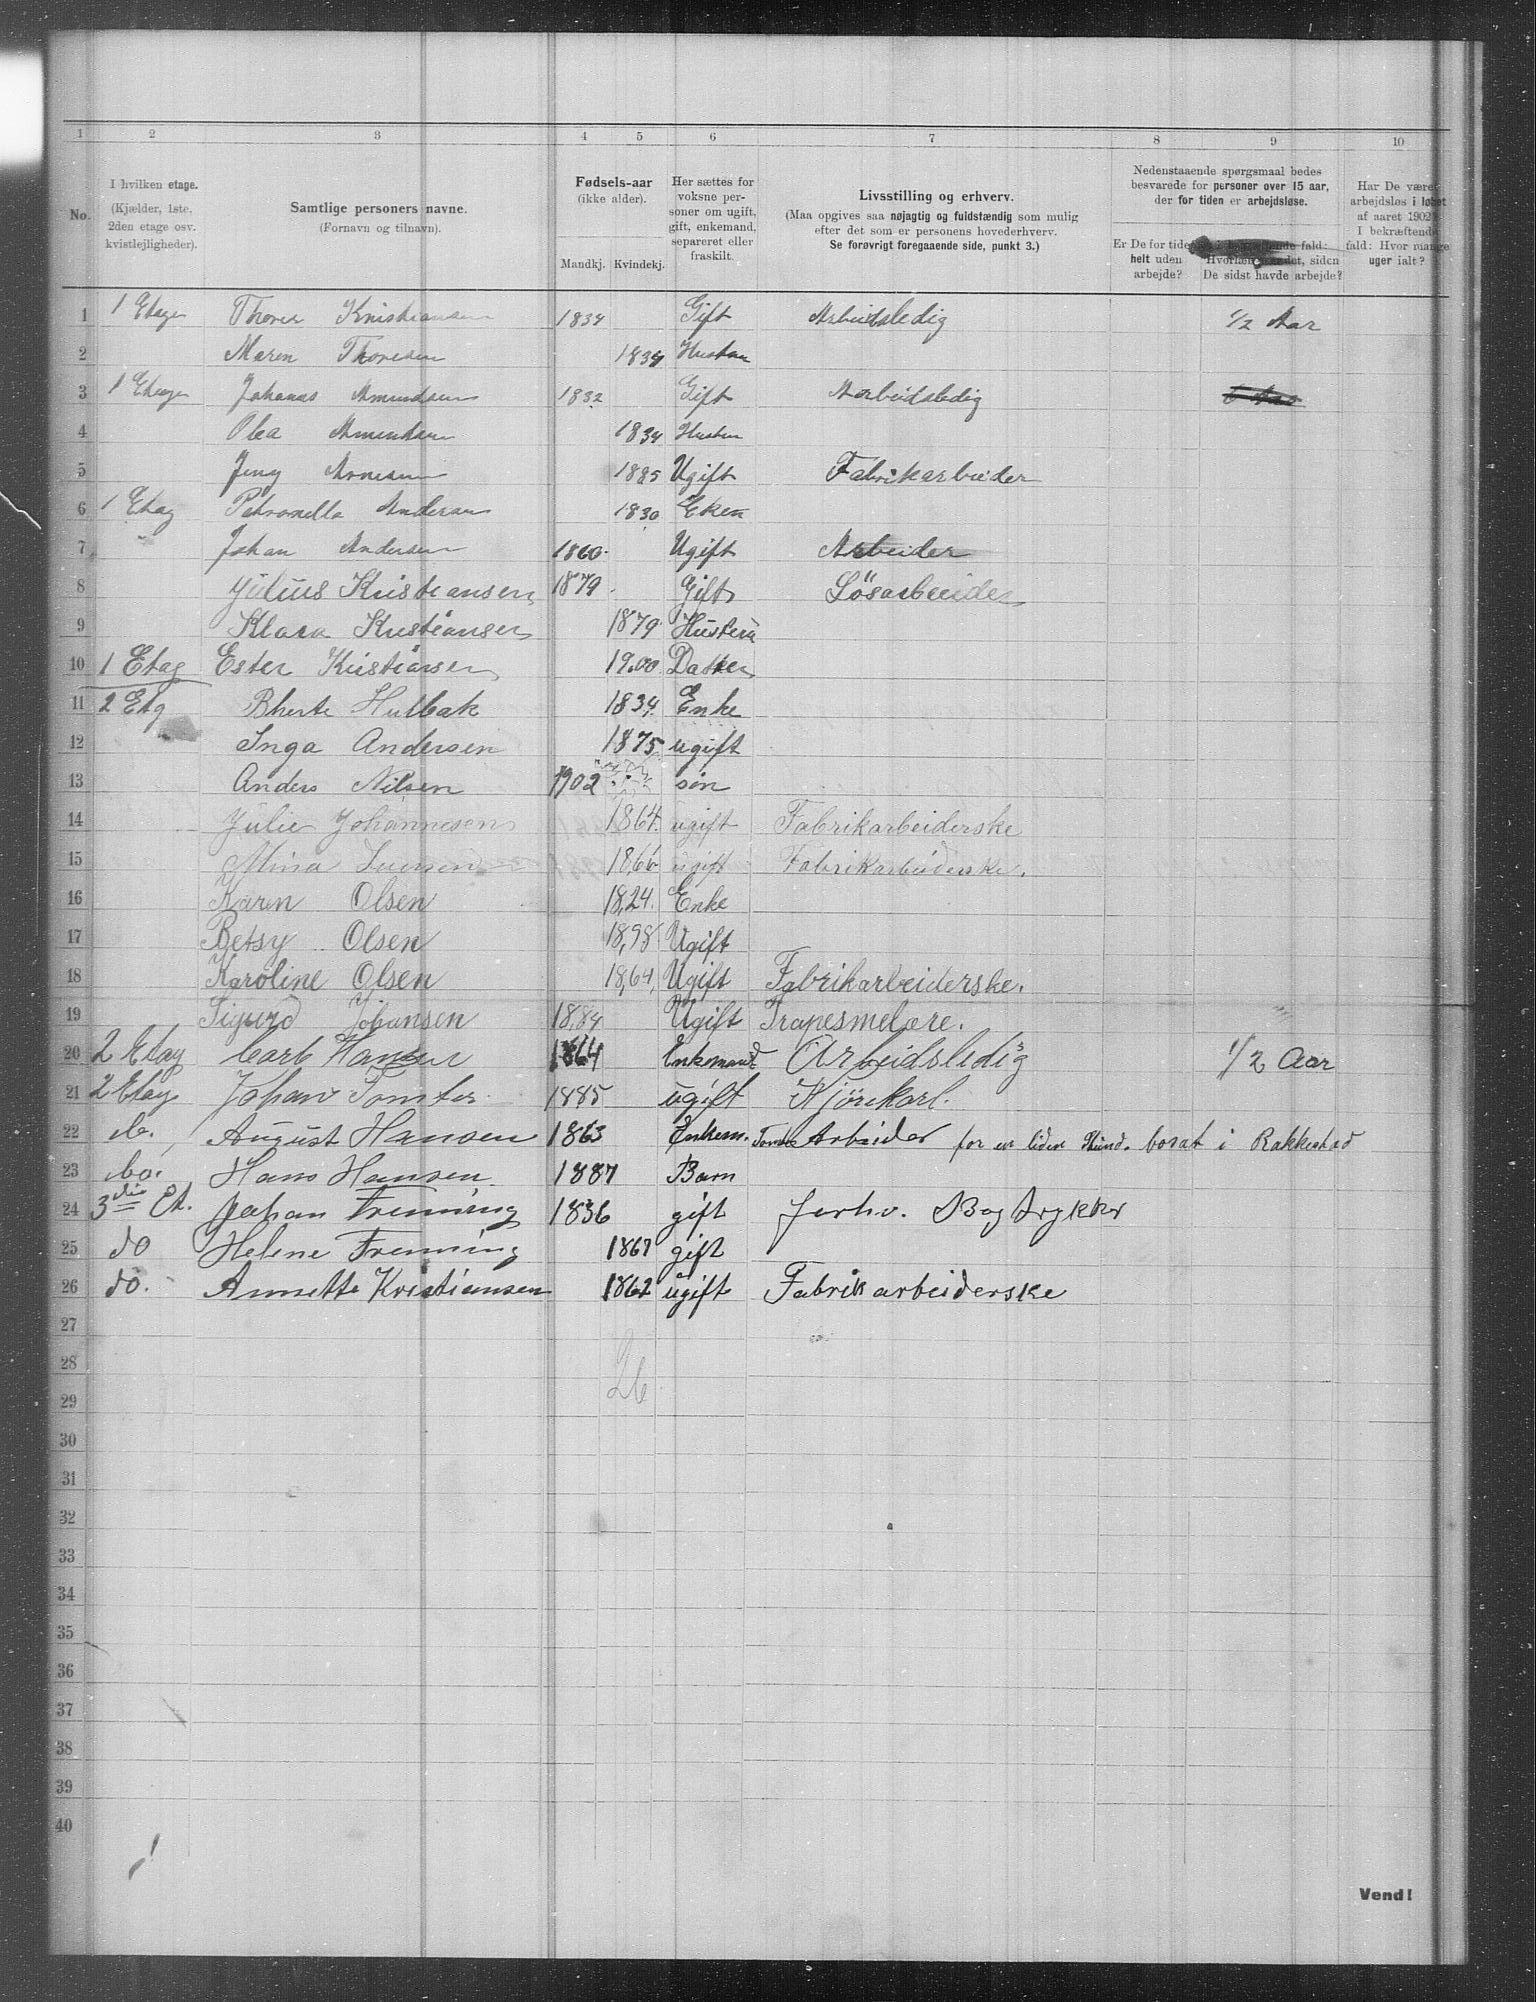 1 2 3 4 5 6 7 8 9 10
No.
I hvilken etage.
(Kjælder, 1ste.
2den etage osv.
kvistlejligheder).
Samtlige personers navne.
(Fornavn og tilnavn).
Fødsels-aar
(ikke alder).
Mandkj. Kvindekj.
Her sættes for
voksne per-
soner om ugift,
gift, enkemand,
separeret eller
fraskilt.
Livsstilling og erhverv.
(Maa opgives saa nøjagtig og fuldstændig som mulig
efter det som er personens hovederhverv.
Se forøvrigt foregaaende side, punkt 3.)
Nedenstaaende spørgsmaal bedes
besvarede for personer over 15 aar,
der for tiden er arbejdsløse.
Er De for tiden
helt uden
arbejde?
fald:
siden
De sidst havde arbejde?
Har De været
arbejdsløs i løbet
af aaret 1902?
I bekræftende
fald: Hvor mange
uger ialt?
1 1 Etage Thorer Kristiansen 1834 Gift Arbeidsledig 1/2 Aar
2 Maren Thoresen 1834 Hustru
3 1 Etage Johanas Amundsen 1832 Gift Arbeidsledig
4 Olea Amundsen 1834 Hustru
5 Jeny Arnesen 1885 Ugift Fabrikarbeider
6 1 Etag Petronella Andersen 1830 Eken
7 " Johan Andersen 1860. Ugift Arbeider
8 Julius Kristiansen 1879. Gift Lösarbeider
9 Klara Kristiansen 1879 Husteru
10 1 Etag Ester Kristiansen 1900 Datter
11 2 Etg Bherte Hulbak 1834 Enke
12 Inga Andersen 1875 ugift
13 Anders Nilsen 1902 søn
14 Julie Johannesen 1864. ugift Fabrikarbeiderske
15 Mina Iversen 1866 ugift Fabrikarbeiderske.
16 Karen Olsen 1824. Enke
17 Betsy Olsen 1898 Ugift
18 Karoline Olsen 1864, Ugift Fabrikarbeiderske.
19 Sigurd Johansen 1884 Ugift Trapesmelære.
20 2 Etag Carl Hansen 1864 Enkemand Arbeidsledig 1/2 Aar
21 2 Etag Johan Tomter 1885 ugift Kjörekarl.
22 do. August Hansen 1863 Enkem. Arbeider for en liden stund. bosat i Rakkestad
23 do. Hans Hansen 1887 Barn
24 3die Et. Johan Frenning 1836 gift forhv. Bogtrykker
25 do Helene Frenning 1867 gift
26 do. Annette Kristiansen 1862 ugift Fabrikarbeiderske
27
28
26
29
30
31
32
33
34
35
36
37
38
39
40
Vend!